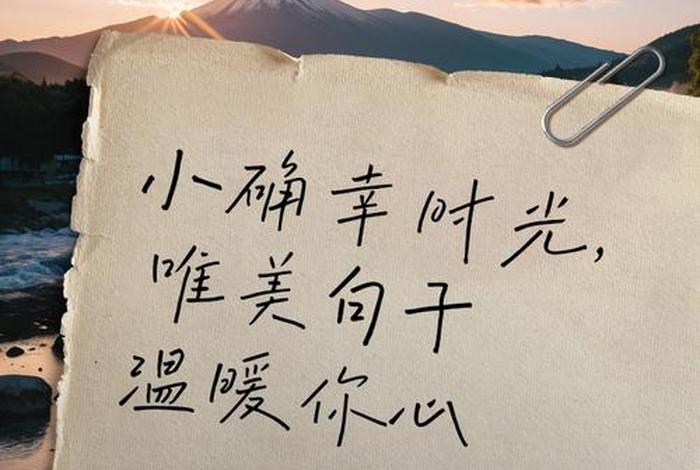 小确幸时光,
唯美句子
温暖你心